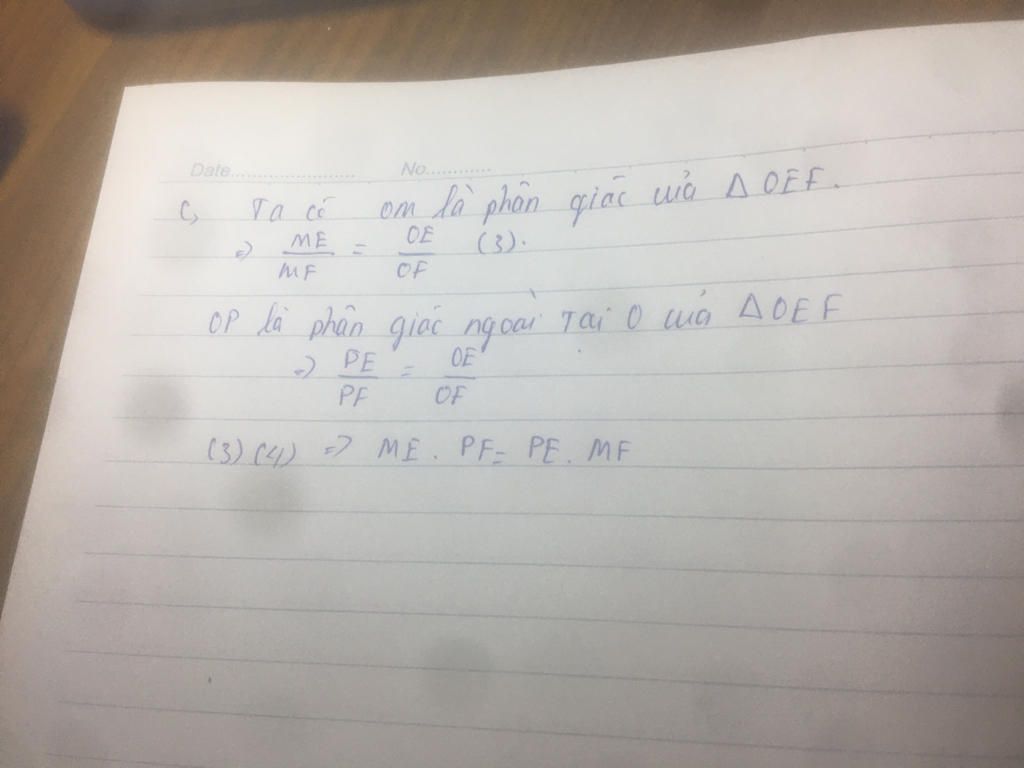 Date.................... No............
c, Ta có OM là phân giác của Δ OEF.
=> ME/MF = OE/OF (3).
OP là phân giác ngoài tại O của Δ OEF
=> PE/PF = OE/OF
(3) (4) => ME . PF = PE . MF